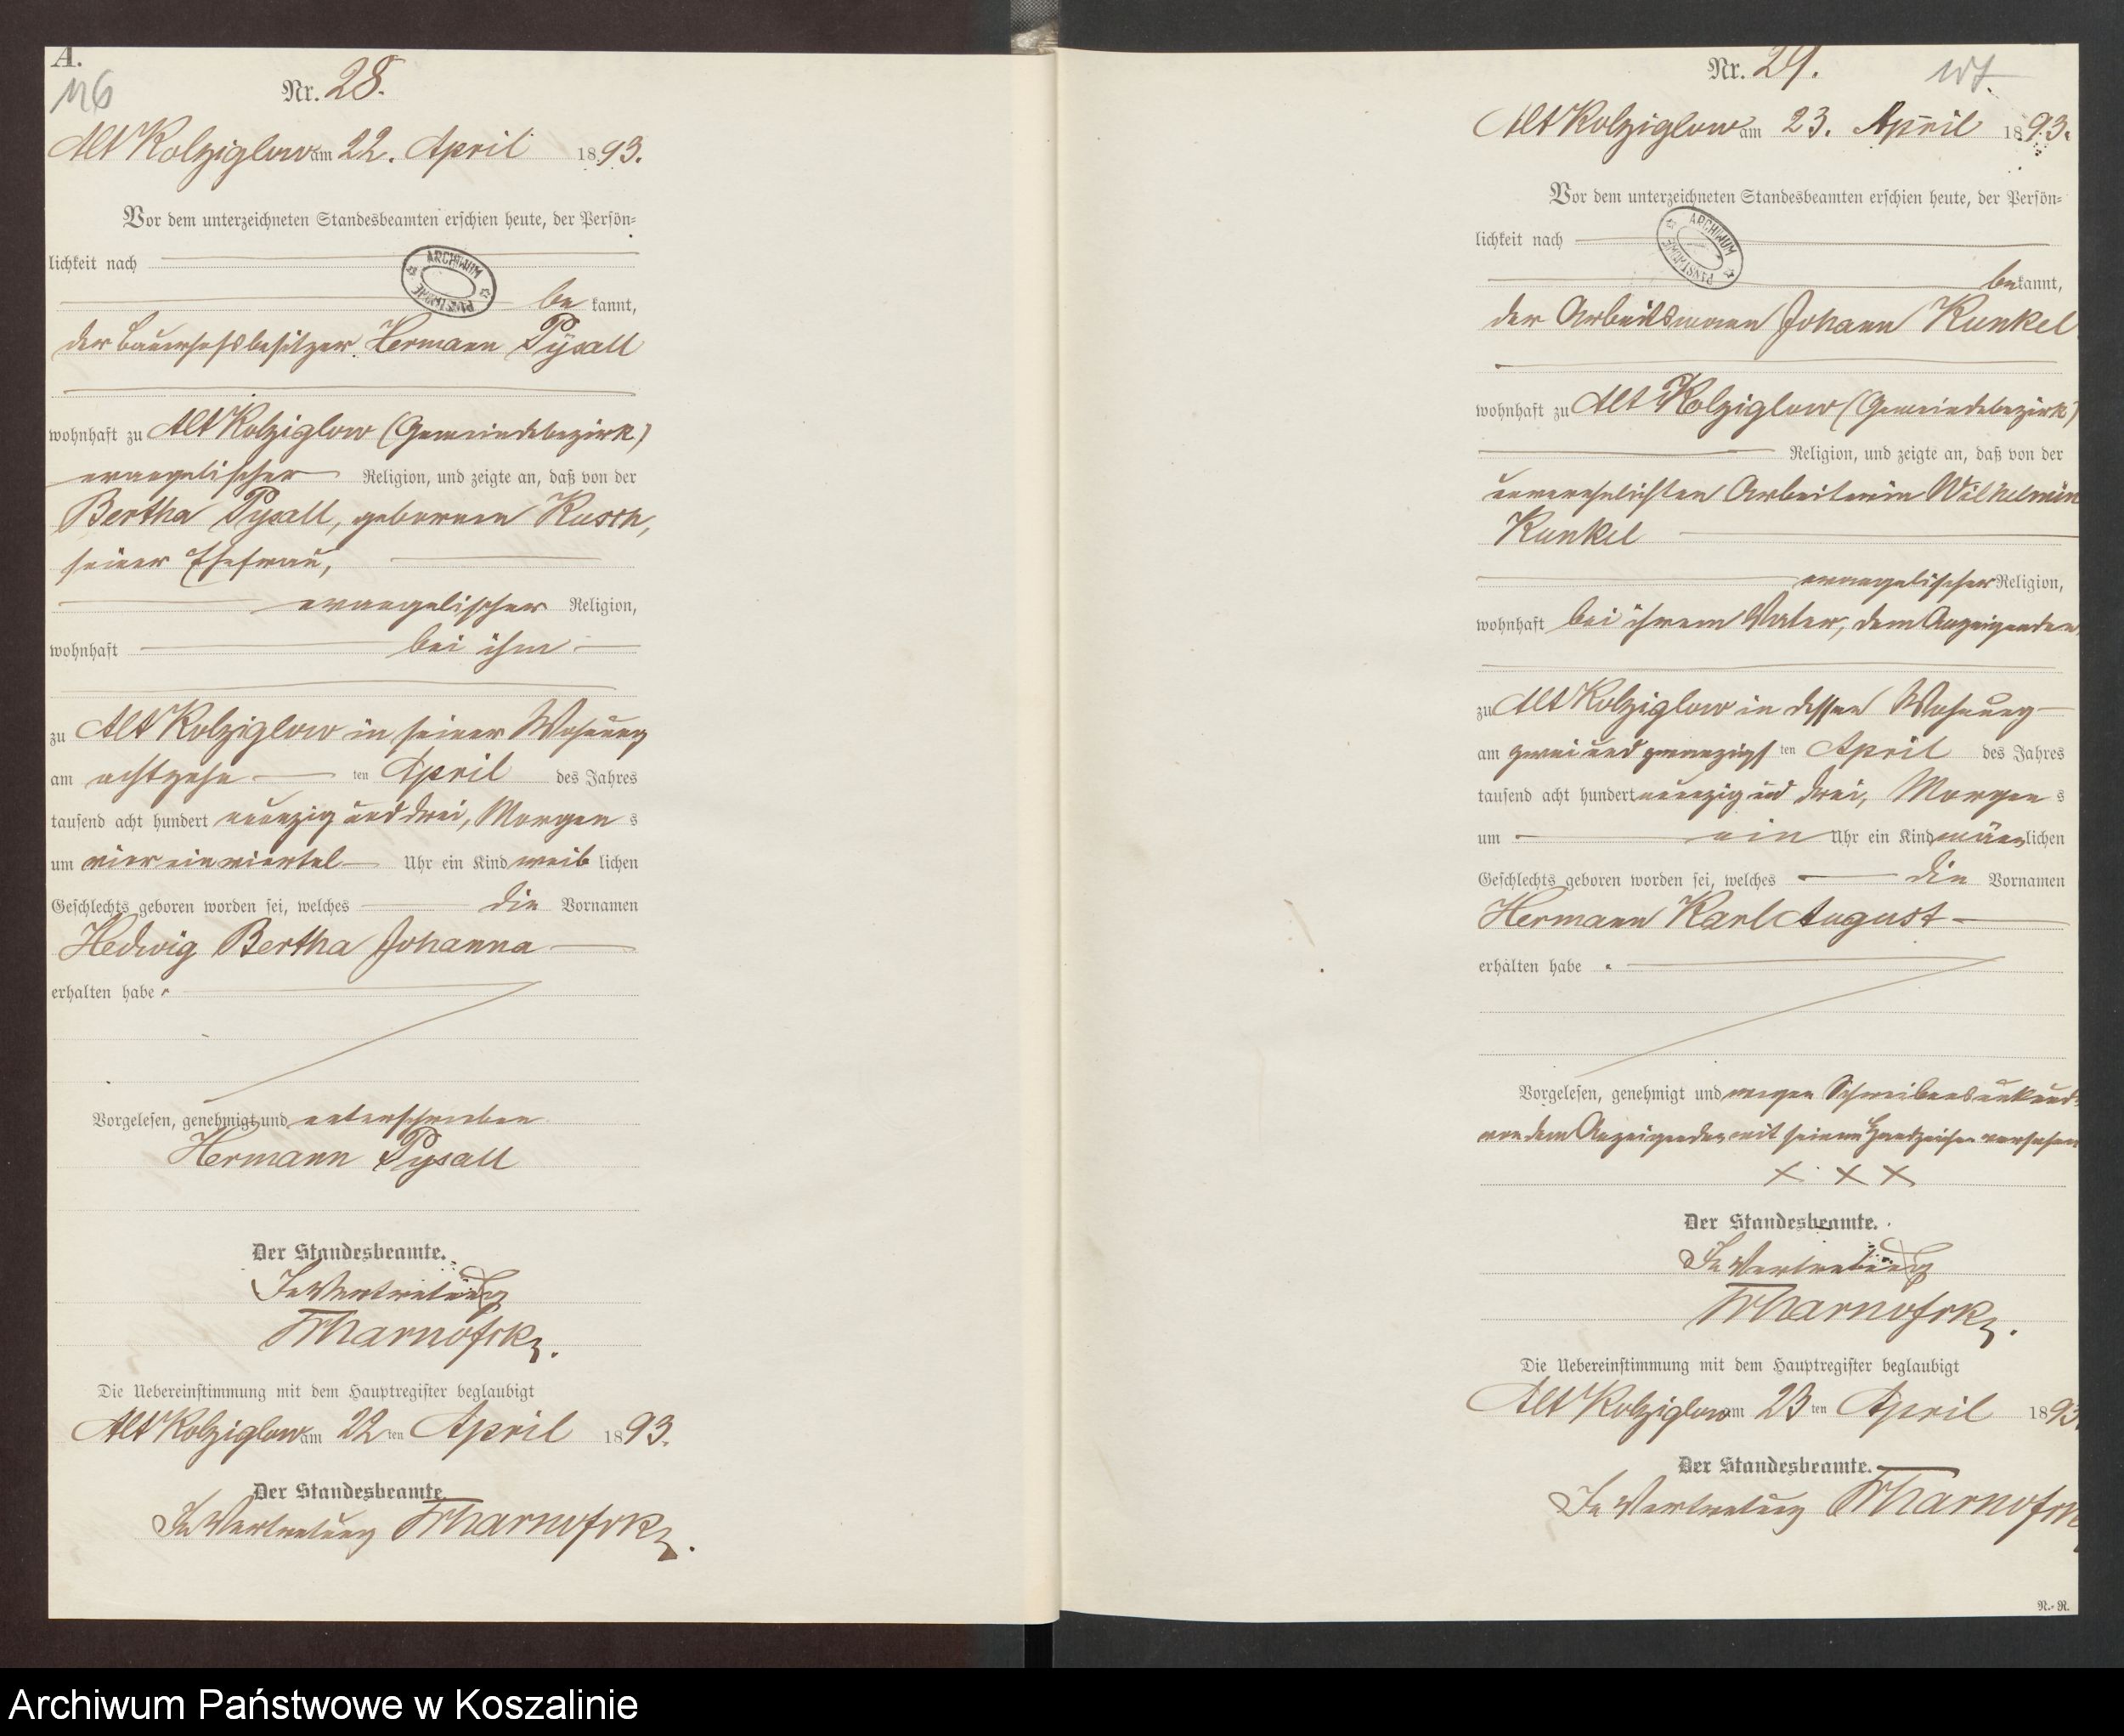 A.
Nr. 28.
Alt Kolziglow am 22. April 1893.
Vor dem unterzeichneten Standesbeamten erschien heute, der Persön-
lichkeit nach
ARCHIWUM PAŃSTWOWE
be kannt,
der Bauerhofsbesitzer Hermann Pysall
wohnhaft zu Alt Kolziglow (Gemeindebezirk)
evangelischer Religion, und zeigte an, daß von der
Bertha Pysall, geborenen Kusch,
seiner Ehefrau,
evangelischer Religion,
wohnhaft bei ihm
zu Alt Kolziglow in seiner Wohnung
am achtzehn ten April des Jahres
tausend acht hundert neunzig und drei, Morgen s
um vier ein viertel Uhr ein Kind weib lichen
Geschlechts geboren worden sei, welches die Vornamen
Hedwig Bertha Johanna
erhalten habe.
Vorgelesen, genehmigt und unterschrieben
Hermann Pysall
Der Standesbeamte.
In Vertretung
Die Uebereinstimmung mit dem Hauptregister beglaubigt
Alt Kolziglow am 22 ten April 1893.
Der Standesbeamte.
In Vertretung
Nr. 29.
Alt Kolziglow am 23. April 1893.
Vor dem unterzeichneten Standesbeamten erschien heute, der Persön-
lichkeit nach
ARCHIWUM PAŃSTWOWE
be kannt,
der Arbeitsmann Johann Kunkel
wohnhaft zu Alt Kolziglow (Gemeindebezirk)
Religion, und zeigte an, daß von der
unverehelichten Arbeiterin Wilhelmin
Kunkel
evangelischer Religion,
wohnhaft bei ihrem Vater, dem Anzeigenden,
zu Alt Kolziglow in dessen Wohnung
am zwei und zwanzigs ten April des Jahres
tausend acht hundert neunzig und drei, Morgen s
um ein Uhr ein Kind männ lichen
Geschlechts geboren worden sei, welches die Vornamen
Hermann Karl August
erhalten habe.
Vorgelesen, genehmigt und wegen Schreibensunkund
von dem Anzeigenden mit seinem Handzeichen versehen
X X X
Der Standesbeamte.
In Vertretung
Die Uebereinstimmung mit dem Hauptregister beglaubigt
Alt Kolziglow am 23 ten April 1893
Der Standesbeamte.
In Vertretung
N.-R.
Archiwum Państwowe w Koszalinie